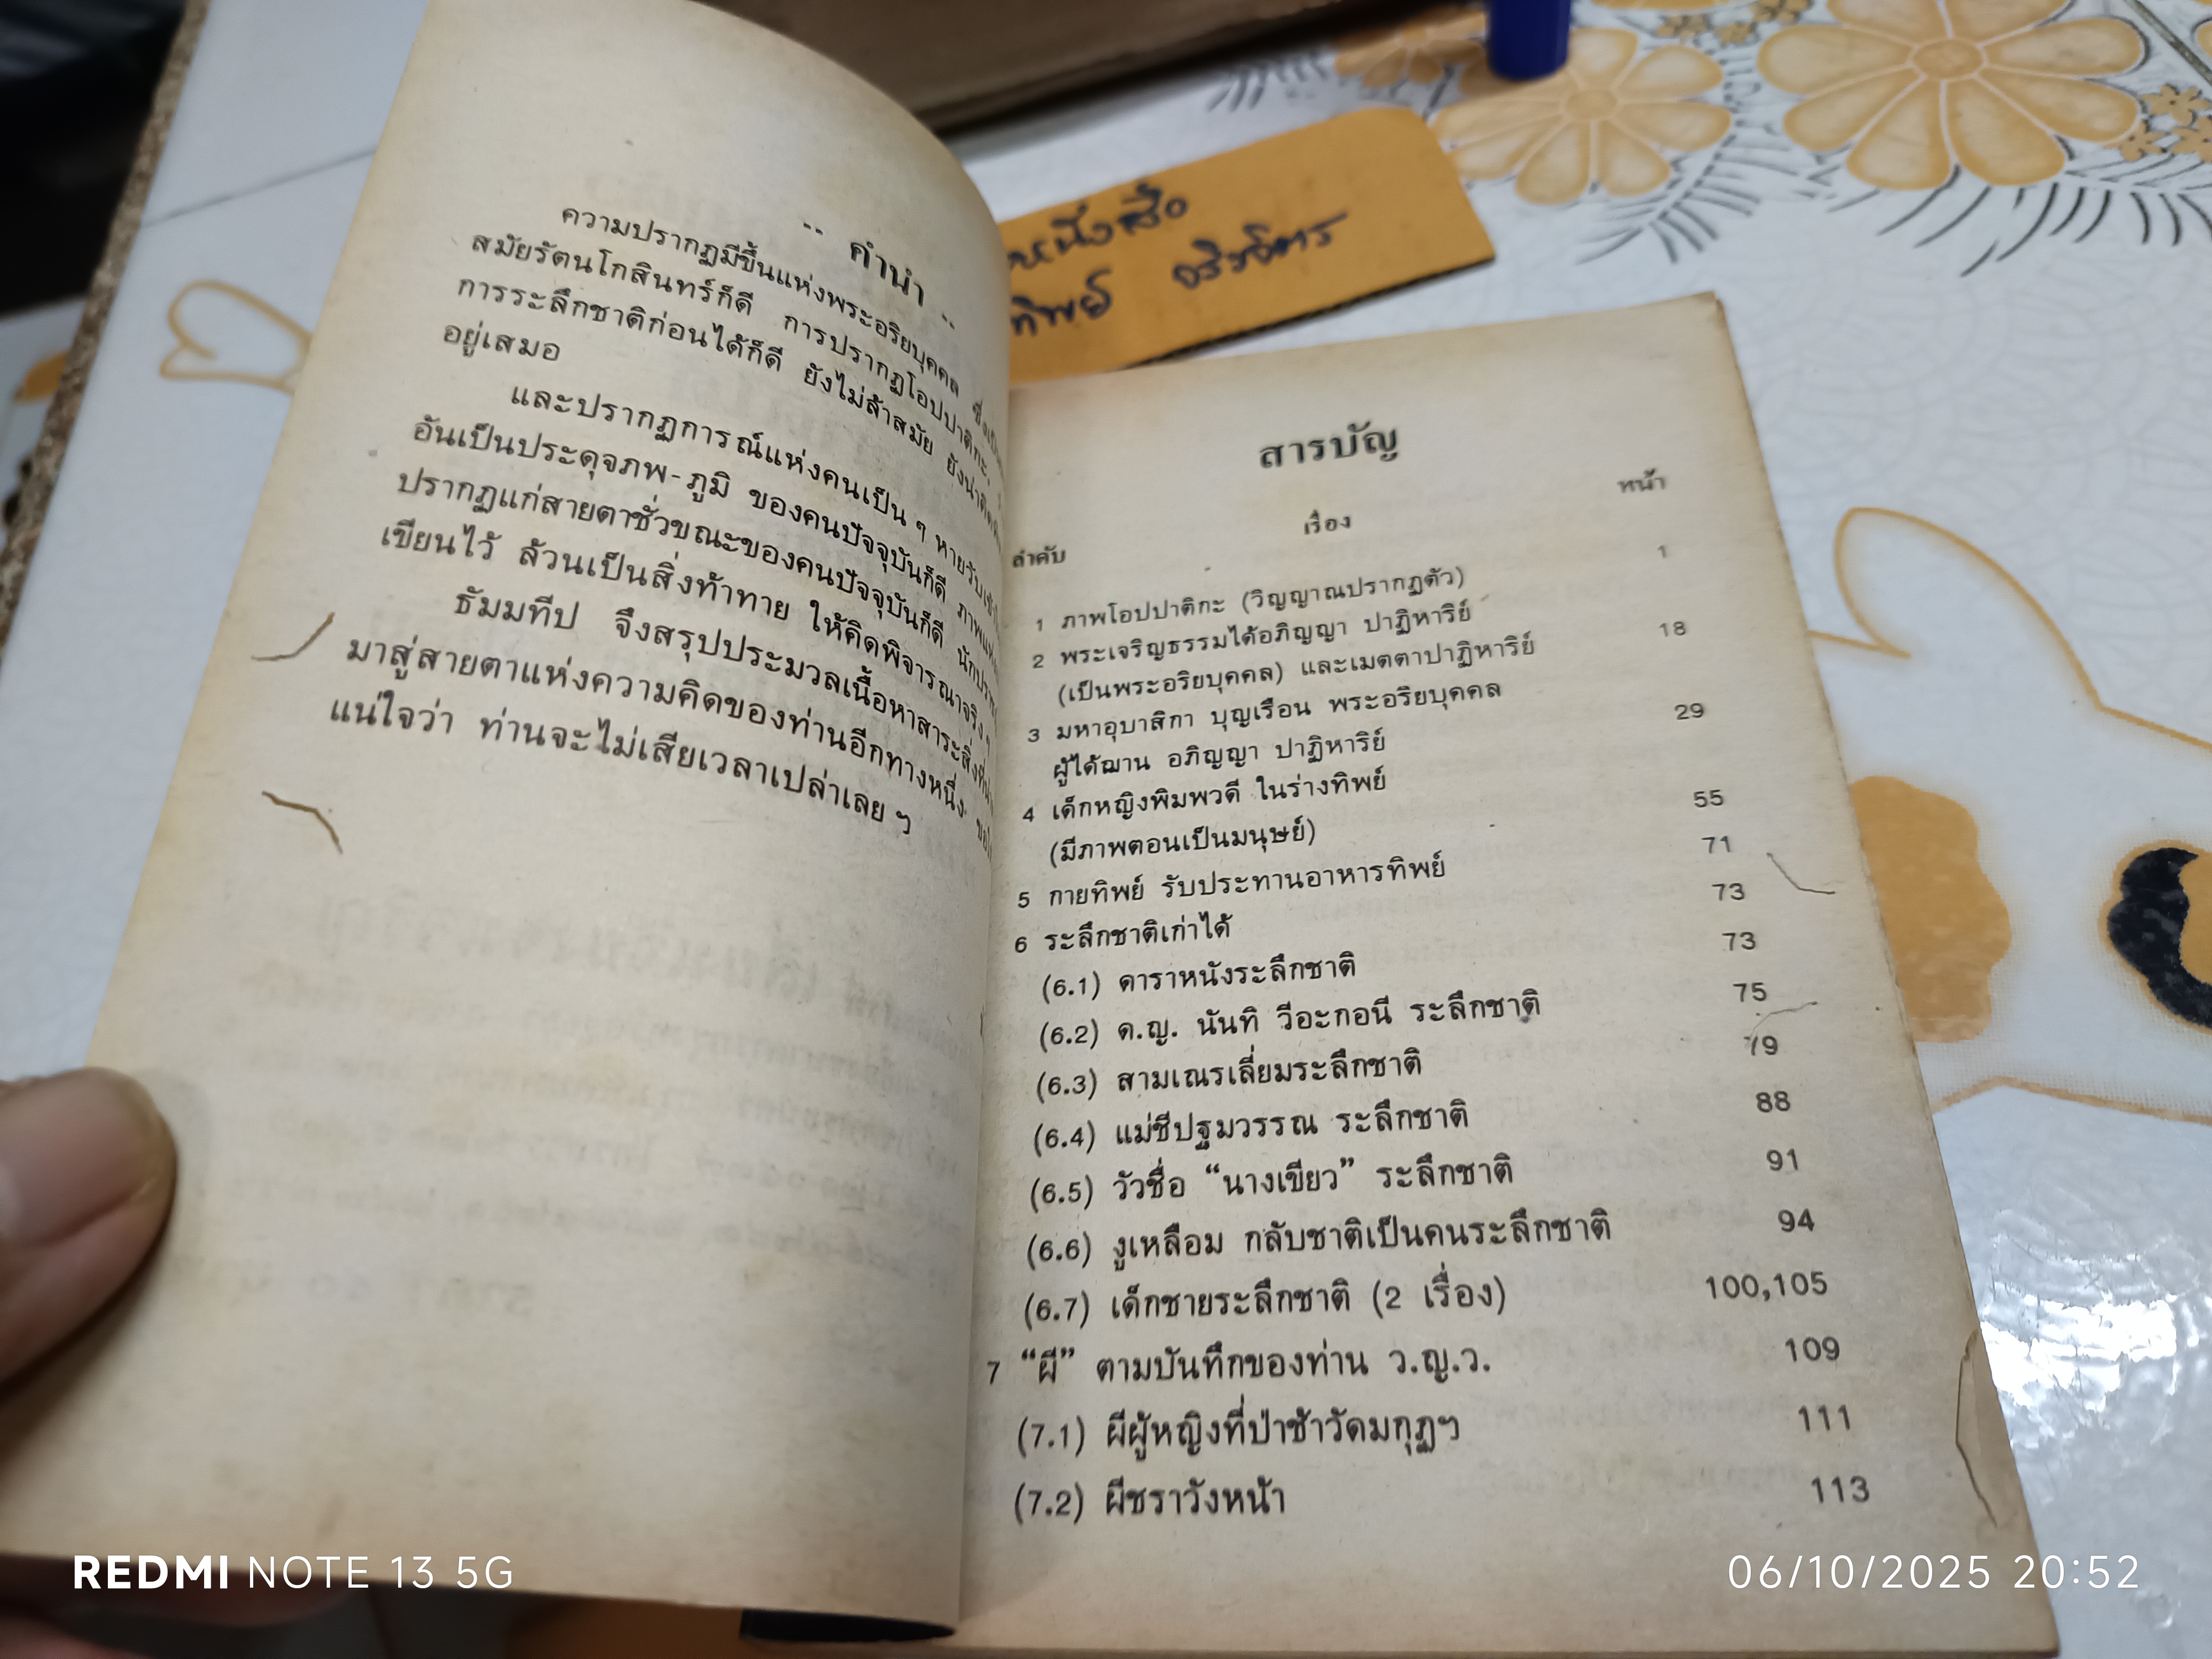 " คำนำ "
ความปรากฏมีขึ้นแห่งพระอริยบุคคล
สมัยรัตนโกสินทร์ก็ดี การปรากฏโอปปาติกะ
การระลึกชาติก่อนได้ก็ดี ยังไม่ล้าสมัย
อยู่เสมอ
และปรากฏการณ์แห่งคนเป็น ๆ หายวับ
อันเป็นประดุจภพ-ภูมิ ของคนปัจจุบันก็ดี
ปรากฏแก่สายตาชั่วขณะของคนปัจจุบันก็ดี
เขียนไว้ ล้วนเป็นสิ่งท้าทาย ให้คิดพิจารณาจริง ๆ
ธัมมทีป จึงสรุปประมวลเนื้อหาสาระ
มาสู่สายตาแห่งความคิดของท่านอีกทางหนึ่ง
แน่ใจว่า ท่านจะไม่เสียเวลาเปล่าเลย ฯ
หนังสือ
ทิพย์ อริยจิตร
สารบัญ
ลำดับ เรื่อง หน้า
1 ภาพโอปปาติกะ (วิญญาณปรากฏตัว) 1
2 พระเจริญธรรมได้อภิญญา ปาฏิหาริย์
(เป็นพระอริยบุคคล) และเมตตาปาฏิหาริย์ 18
3 มหาอุบาสิกา บุญเรือน พระอริยบุคคล
ผู้ได้ฌาน อภิญญา ปาฏิหาริย์ 29
4 เด็กหญิงพิมพวดี ในร่างทิพย์
(มีภาพตอนเป็นมนุษย์) 55
5 กายทิพย์ รับประทานอาหารทิพย์ 71
6 ระลึกชาติเก่าได้ 73
(6.1) ดาราหนังระลึกชาติ 73
(6.2) ด.ญ. นันทิ วีอะกอนี ระลึกชาติ 75
(6.3) สามเณรเลี่ยมระลึกชาติ 79
(6.4) แม่ชีปฐมวรรณ ระลึกชาติ 88
(6.5) วัวชื่อ “นางเขียว” ระลึกชาติ 91
(6.6) งูเหลือม กลับชาติเป็นคนระลึกชาติ 94
(6.7) เด็กชายระลึกชาติ (2 เรื่อง) 100,105
7 “ผี” ตามบันทึกของท่าน ว.ญ.ว. 109
(7.1) ผีผู้หญิงที่ป่าช้าวัดมกุฏฯ 111
(7.2) ผีชราวังหน้า 113
REDMI NOTE 13 5G
06/10/2025 20:52